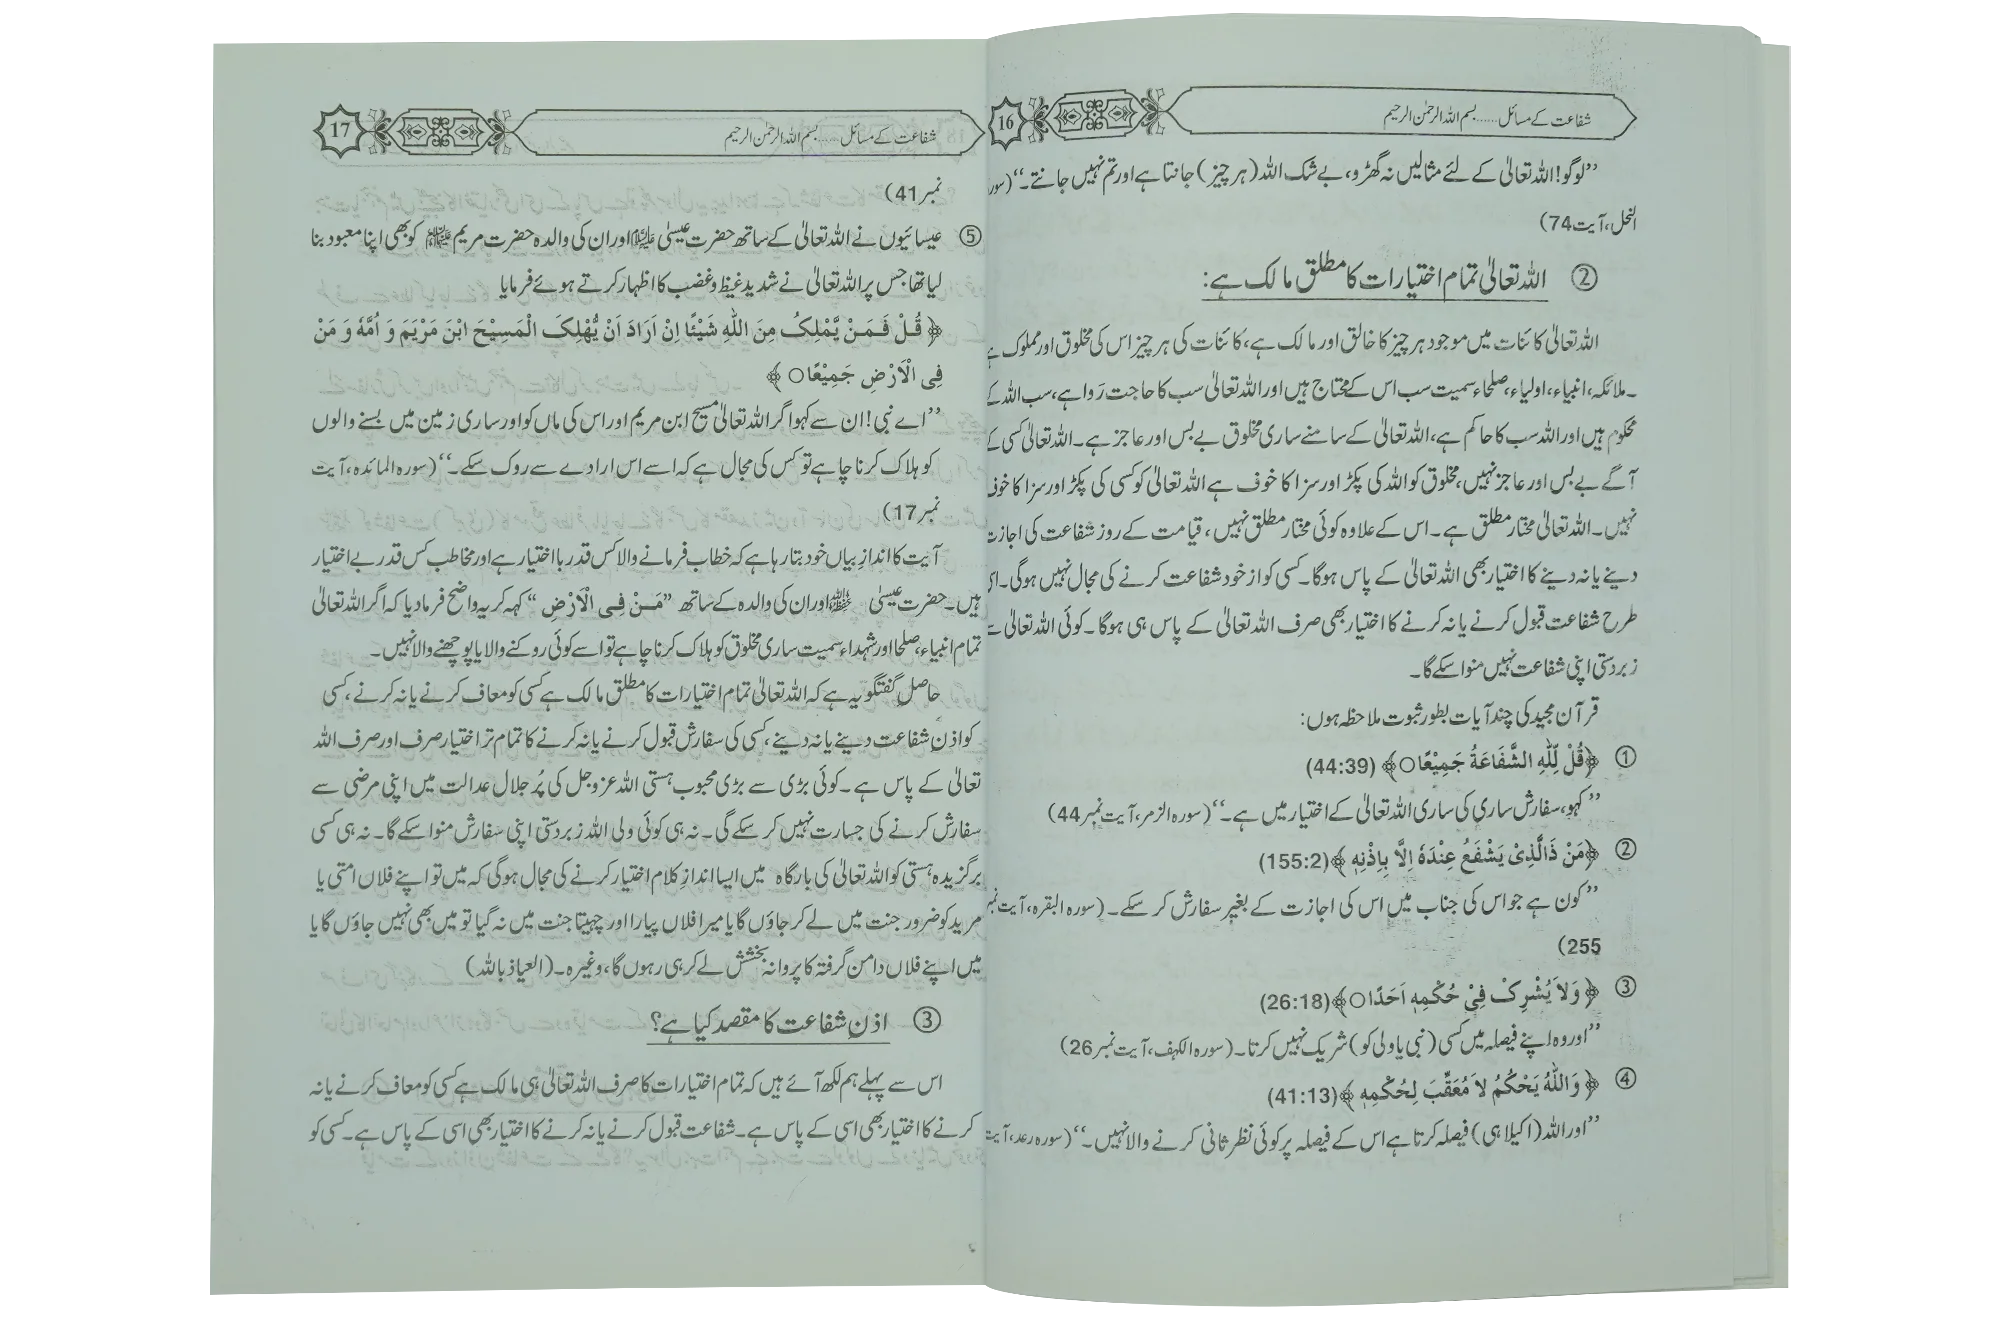 شفاعت کے مسائل......بسم اللہ الرحمٰن الرحیم
16
’’لوگو! اللہ تعالیٰ کے لئے مثالیں نہ گھڑو، بے شک اللہ (ہر چیز) جانتا ہے اور تم نہیں جانتے۔‘‘ (سورہ
النحل، آیت 74)
② اللہ تعالیٰ تمام اختیارات کا مطلق مالک ہے:
اللہ تعالیٰ کائنات میں موجود ہر چیز کا خالق اور مالک ہے، کائنات کی ہر چیز اس کی مخلوق اور مملوک ہے
۔ ملائکہ، انبیاء، اولیاء، صلحاء سمیت سب اس کے محتاج ہیں اور اللہ تعالیٰ سب کا حاجت رَوا ہے، سب اللہ کے
محکوم ہیں اور اللہ سب کا حاکم ہے، اللہ تعالیٰ کے سامنے ساری مخلوق بے بس اور عاجز ہے۔ اللہ تعالیٰ کسی کے
آگے بے بس اور عاجز نہیں، مخلوق کو اللہ کی پکڑ اور سزا کا خوف ہے اللہ تعالیٰ کو کسی کی پکڑ اور سزا کا خوف
نہیں۔ اللہ تعالیٰ مختار مطلق ہے۔ اس کے علاوہ کوئی مختار مطلق نہیں، قیامت کے روز شفاعت کی اجازت
دینے یا نہ دینے کا اختیار بھی اللہ تعالیٰ کے پاس ہوگا۔ کسی کو از خود شفاعت کرنے کی مجال نہیں ہوگی۔ اسی
طرح شفاعت قبول کرنے یا نہ کرنے کا اختیار بھی صرف اللہ تعالیٰ کے پاس ہی ہوگا۔ کوئی اللہ تعالیٰ سے
زبردستی اپنی شفاعت نہیں منوا سکے گا۔
قرآن مجید کی چند آیات بطور ثبوت ملاحظہ ہوں:
① ﴿قُلْ لِّلّٰهِ الشَّفَاعَةُ جَمِيْعًا○﴾ (44:39)
’’کہو، سفارش ساری کی ساری اللہ تعالیٰ کے اختیار میں ہے۔‘‘ (سورہ الزمر، آیت نمبر 44)
② ﴿مَنْ ذَالَّذِىْ يَشْفَعُ عِنْدَهٗ اِلَّا بِاِذْنِهٖ﴾ (155:2)
’’کون ہے جو اس کی جناب میں اس کی اجازت کے بغیر سفارش کر سکے۔ (سورہ البقرہ، آیت نمبر
255)
③ ﴿وَلاَ يُشْرِكْ فِىْ حُكْمِهٖ اَحَدًا○﴾ (26:18)
’’اور وہ اپنے فیصلہ میں کسی (نبی یا ولی کو) شریک نہیں کرتا۔ (سورہ الکہف، آیت نمبر 26)
④ ﴿وَاللّٰهُ يَحْكُمُ لاَ مُعَقِّبَ لِحُكْمِهٖ﴾ (41:13)
’’اور اللہ (اکیلا ہی) فیصلہ کرتا ہے اس کے فیصلہ پر کوئی نظر ثانی کرنے والا نہیں۔‘‘ (سورہ رعد، آیت
شفاعت کے مسائل......بسم اللہ الرحمٰن الرحیم
17
نمبر 41)
⑤ عیسائیوں نے اللہ تعالیٰ کے ساتھ حضرت عیسیٰ علیہ السلام اور ان کی والدہ حضرت مریم علیہا السلام کو بھی اپنا معبود بنا
لیا تھا جس پر اللہ تعالیٰ نے شدید غیظ و غضب کا اظہار کرتے ہوئے فرمایا
﴿قُلْ فَمَنْ يَّمْلِكُ مِنَ اللّٰهِ شَيْئًا اِنْ اَرَادَ اَنْ يُّهْلِكَ الْمَسِيْحَ ابْنَ مَرْيَمَ وَ اُمَّهٗ وَ مَنْ
فِى الْاَرْضِ جَمِيْعًا○﴾
’’اے نبی! ان سے کہو اگر اللہ تعالیٰ مسیح ابن مریم اور اس کی ماں کو اور ساری زمین میں بسنے والوں
کو ہلاک کرنا چاہے تو کس کی مجال ہے کہ اسے اس ارادے سے روک سکے۔‘‘ (سورہ المائدہ، آیت
نمبر 17)
آیت کا اندازِ بیاں خود بتا رہا ہے کہ خطاب فرمانے والا کس قدر با اختیار ہے اور مخاطب کس قدر بے اختیار
ہیں۔ حضرت عیسیٰ علیہ السلام اور ان کی والدہ کے ساتھ ”مَنْ فِى الْاَرْضِ“ کہہ کر یہ واضح فرما دیا کہ اگر اللہ تعالیٰ
تمام انبیاء، صلحا اور شہداء سمیت ساری مخلوق کو ہلاک کرنا چاہے تو اسے کوئی روکنے والا یا پوچھنے والا نہیں۔
حاصلِ گفتگو یہ ہے کہ اللہ تعالیٰ تمام اختیارات کا مطلق مالک ہے کسی کو معاف کرنے یا نہ کرنے، کسی
کو اذنِ شفاعت دینے یا نہ دینے، کسی کی سفارش قبول کرنے یا نہ کرنے کا تمام تر اختیار صرف اور صرف اللہ
تعالیٰ کے پاس ہے۔ کوئی بڑی سے بڑی محبوب ہستی اللہ عزوجل کی پُر جلال عدالت میں اپنی مرضی سے
سفارش کرنے کی جسارت نہیں کر سکے گی۔ نہ ہی کوئی ولی اللہ زبردستی اپنی سفارش منوا سکے گا۔ نہ ہی کسی
برگزیدہ ہستی کو اللہ تعالیٰ کی بارگاہ میں ایسا اندازِ کلام اختیار کرنے کی مجال ہوگی کہ میں تو اپنے فلاں امتی یا
مرید کو ضرور جنت میں لے کر جاؤں گا یا میرا فلاں پیارا اور چہیتا جنت میں نہ گیا تو میں بھی نہیں جاؤں گا یا
میں اپنے فلاں دامن گرفتہ کا پروانہ بخشش لے کر ہی رہوں گا، وغیرہ۔ (العیاذ باللہ)
③ اذنِ شفاعت کا مقصد کیا ہے؟
اس سے پہلے ہم لکھ آئے ہیں کہ تمام اختیارات کا صرف اللہ تعالیٰ ہی مالک ہے کسی کو معاف کرنے یا نہ
کرنے کا اختیار بھی اسی کے پاس ہے۔ شفاعت قبول کرنے یا نہ کرنے کا اختیار بھی اسی کے پاس ہے۔ کسی کو